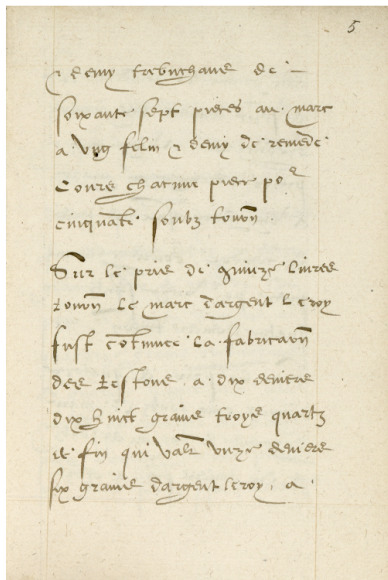 5
& demy trebuchans de
soixante sept pieces au marc
a ung felin & demy de remede
Cours chacune piece por
cinquante soubz tournois
Sur le pris de quinze livres
tournois le marc dargent le roy
fust continuee la fabricaon
des testons a dix deniers
dix huict grains troys quartz
de fin qui vallent unze deniers
six grains dargent le roy, a